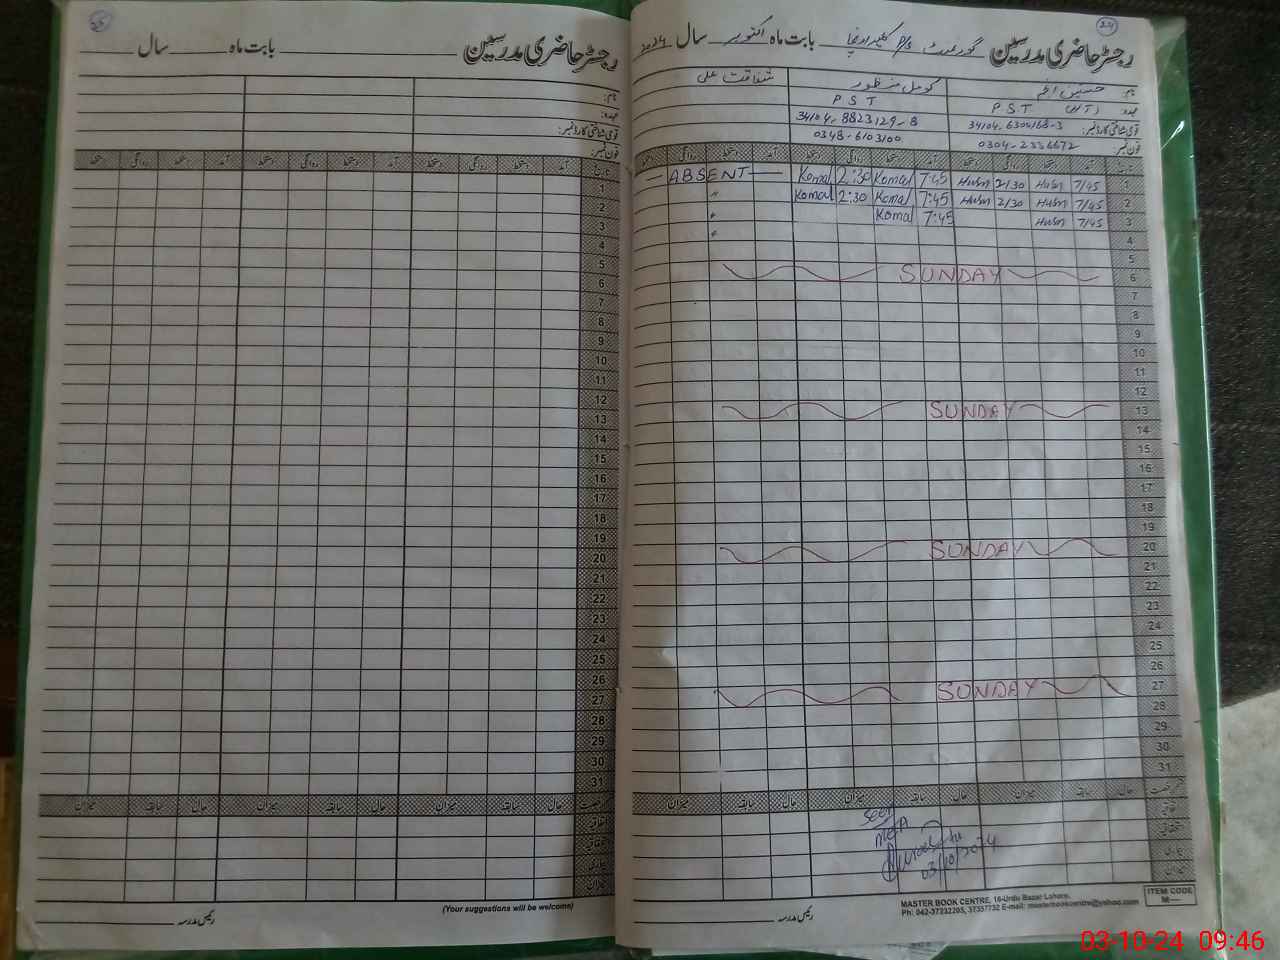 24
رجسٹر حاضری مدرسین گورنمنٹ P/S بابت ماہ اکتوبر سال 2024
نام:
کومل منظور
شفاقت علی
عہدہ: P S T (HT)
P S T
قومی شناختی کارڈ نمبر: 34104-6304168-3
34104-8823129-8
فون نمبر: 0304-2336672
0348-6103100
تاریخ آمد دستخط روانگی دستخط آمد دستخط روانگی دستخط آمد دستخط روانگی دستخط
1 7/45 Husn 2/30 Husn 7:45 Komal 2:30 Komal ABSENT
2 7/45 Husn 2/30 Husn 7:45 Komal 2:30 Komal "
3 7/45 Husn 7:45 Komal "
4 "
5
6 SUNDAY
7
8
9
10
11
12
13 SUNDAY
14
15
16
17
18
19
20 SUNDAY
21
22
23
24
25
26
27 SUNDAY
28
29
30
31
حال سابقہ میزان حال سابقہ میزان حال سابقہ میزان
اتفاقیہ
استحقاقی
بیماری
میزان
seen
MEA
03/10/2024
رئیس مدرسہ
MASTER BOOK CENTRE, 16-Urdu Bazar Lahore.
Ph: 042-37232205, 37357732 E-mail: masterbookcentre@yahoo.com
ITEM CODE
M—
25
رجسٹر حاضری مدرسین بابت ماہ سال
نام:
عہدہ:
قومی شناختی کارڈ نمبر:
فون نمبر:
تاریخ آمد دستخط روانگی دستخط آمد دستخط روانگی دستخط آمد دستخط روانگی دستخط
1
2
3
4
5
6
7
8
9
10
11
12
13
14
15
16
17
18
19
20
21
22
23
24
25
26
27
28
29
30
31
حال سابقہ میزان حال سابقہ میزان حال سابقہ میزان
اتفاقیہ
استحقاقی
بیماری
میزان
(Your suggestions will be welcome)
رئیس مدرسہ
03-10-24 09:46